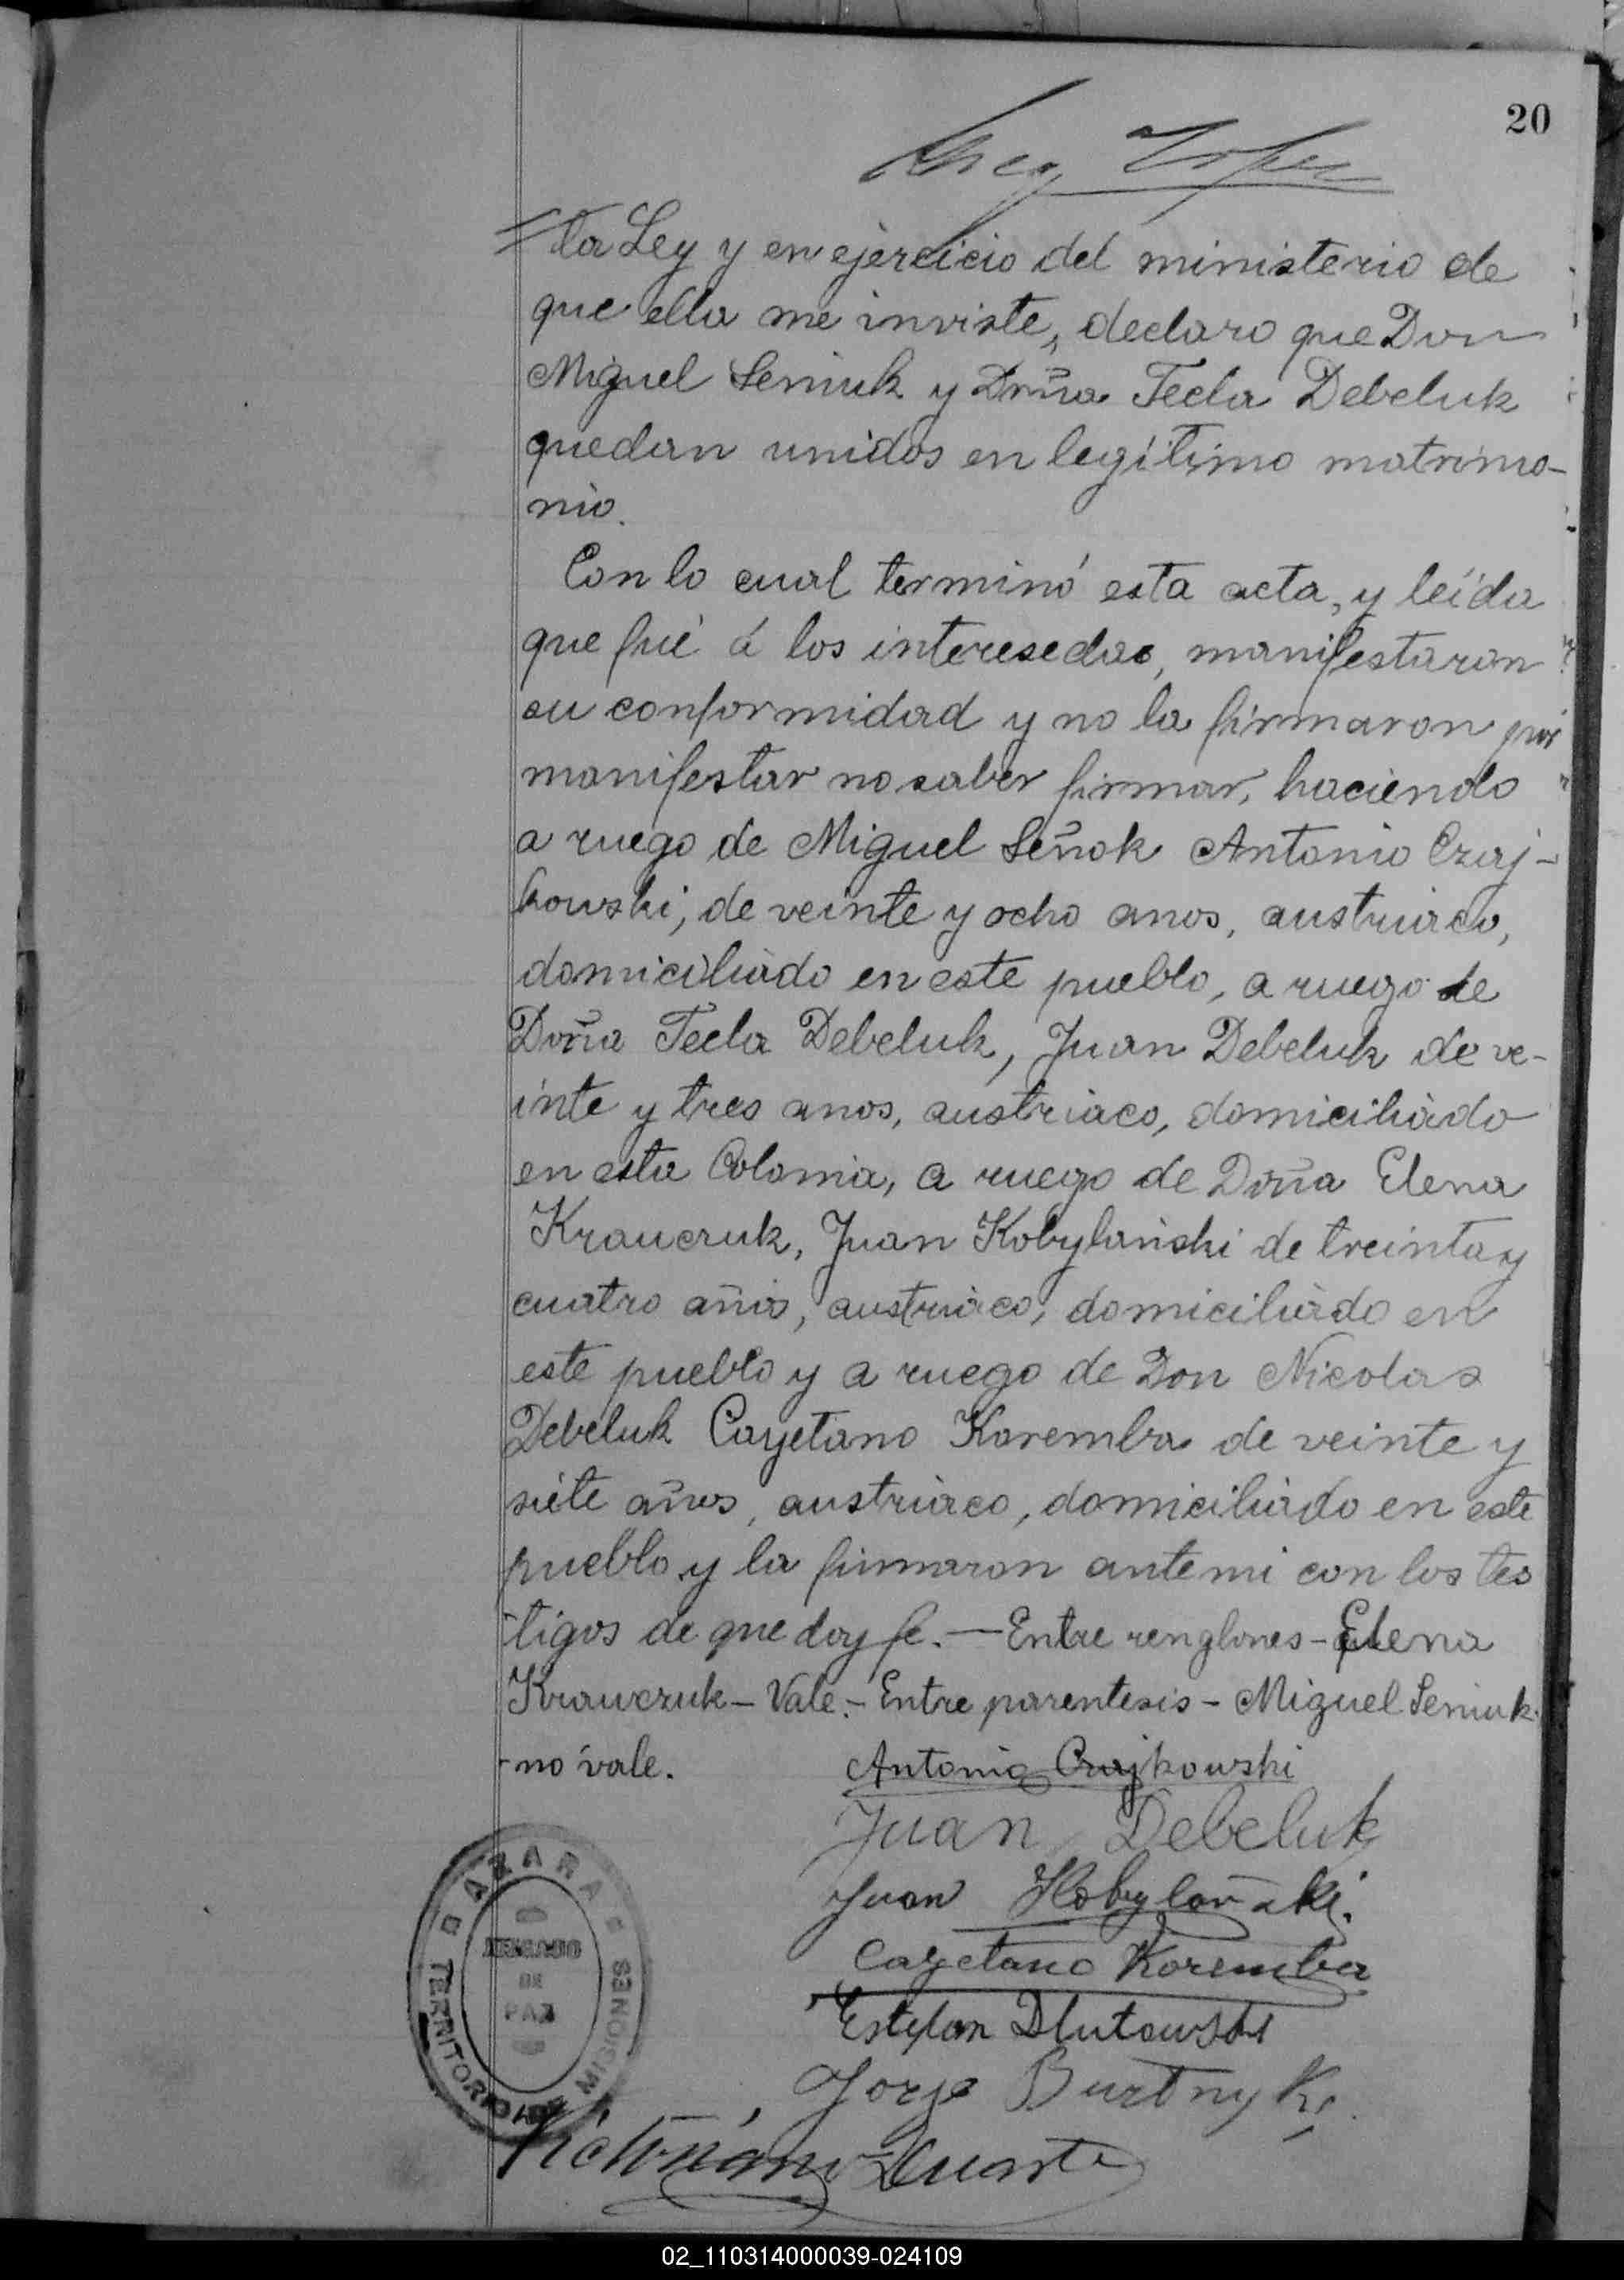 20
la Ley y en ejercicio del ministerio de
que ella me inviste, declaro que Don
Miguel Seniuk y Doña Tecla Debeluk
quedan unidos en legítimo matrimo-
nio.
Con lo cual terminó esta acta, y leída
que fué á los interesedas, manifestaron
su conformidad y no la firmaron por
manifestar no saber firmar, haciendo
a ruego de Miguel Señok Antonio Czaj-
kowski, de veinte y ocho anos, austriaco,
domiciliado en este pueblo, a ruego de
Doña Tecla Debeluk, Juan Debeluk de ve-
inte y tres anos, austriaco, domiciliado
en esta Colonia, a ruego de Doña Elena
Krauczuk, Juan Kobylański de treinta y
cuatro años, austriaco, domiciliado en
este pueblo y a ruego de Don Nicolas
Debeluk Cayetano Koremba de veinte y
siete años, austriaco, domiciliado en este
pueblo y la firmaron ante mi con los tes
-tigos de que doy fe. — Entre renglones - Elena
Krawczuk - Vale. - Entre parentesis - Miguel Seniuk.
- no vale.
Antonio Czajkowski
Juan Debeluk
Juan Kobylański.
Cayetano Koremba
Estefan Dlutowski
Jorge Burtnyk
Victoriano Duarte
AZARA
JUZGADO
DE
PAZ
TERRITORIO DE MISIONES
02_110314000039-024109